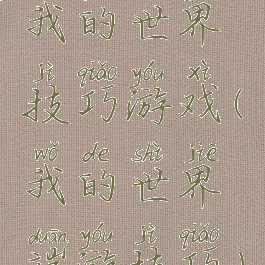 我的世界
jì qiǎo yóu xì
技巧游戏(
wǒ de shì jiè
我的世界
duān yóu jì qiǎo
端游技巧)